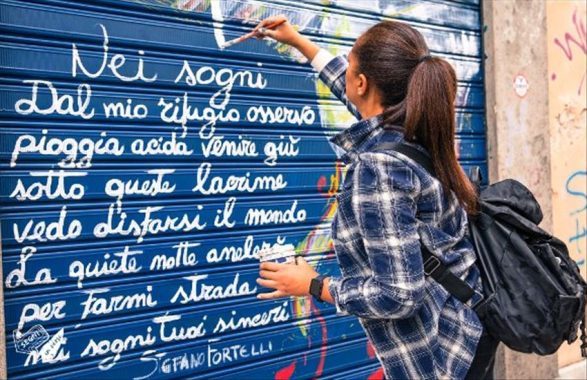 Nei sogni
Dal mio rifugio osservo
pioggia acida venire giù
sotto queste lacrime
vedo disfarsi il mondo
La quiete notte anelerò
per farmi strada
nei sogni tuoi sinceri
STEFANO FORTELLI